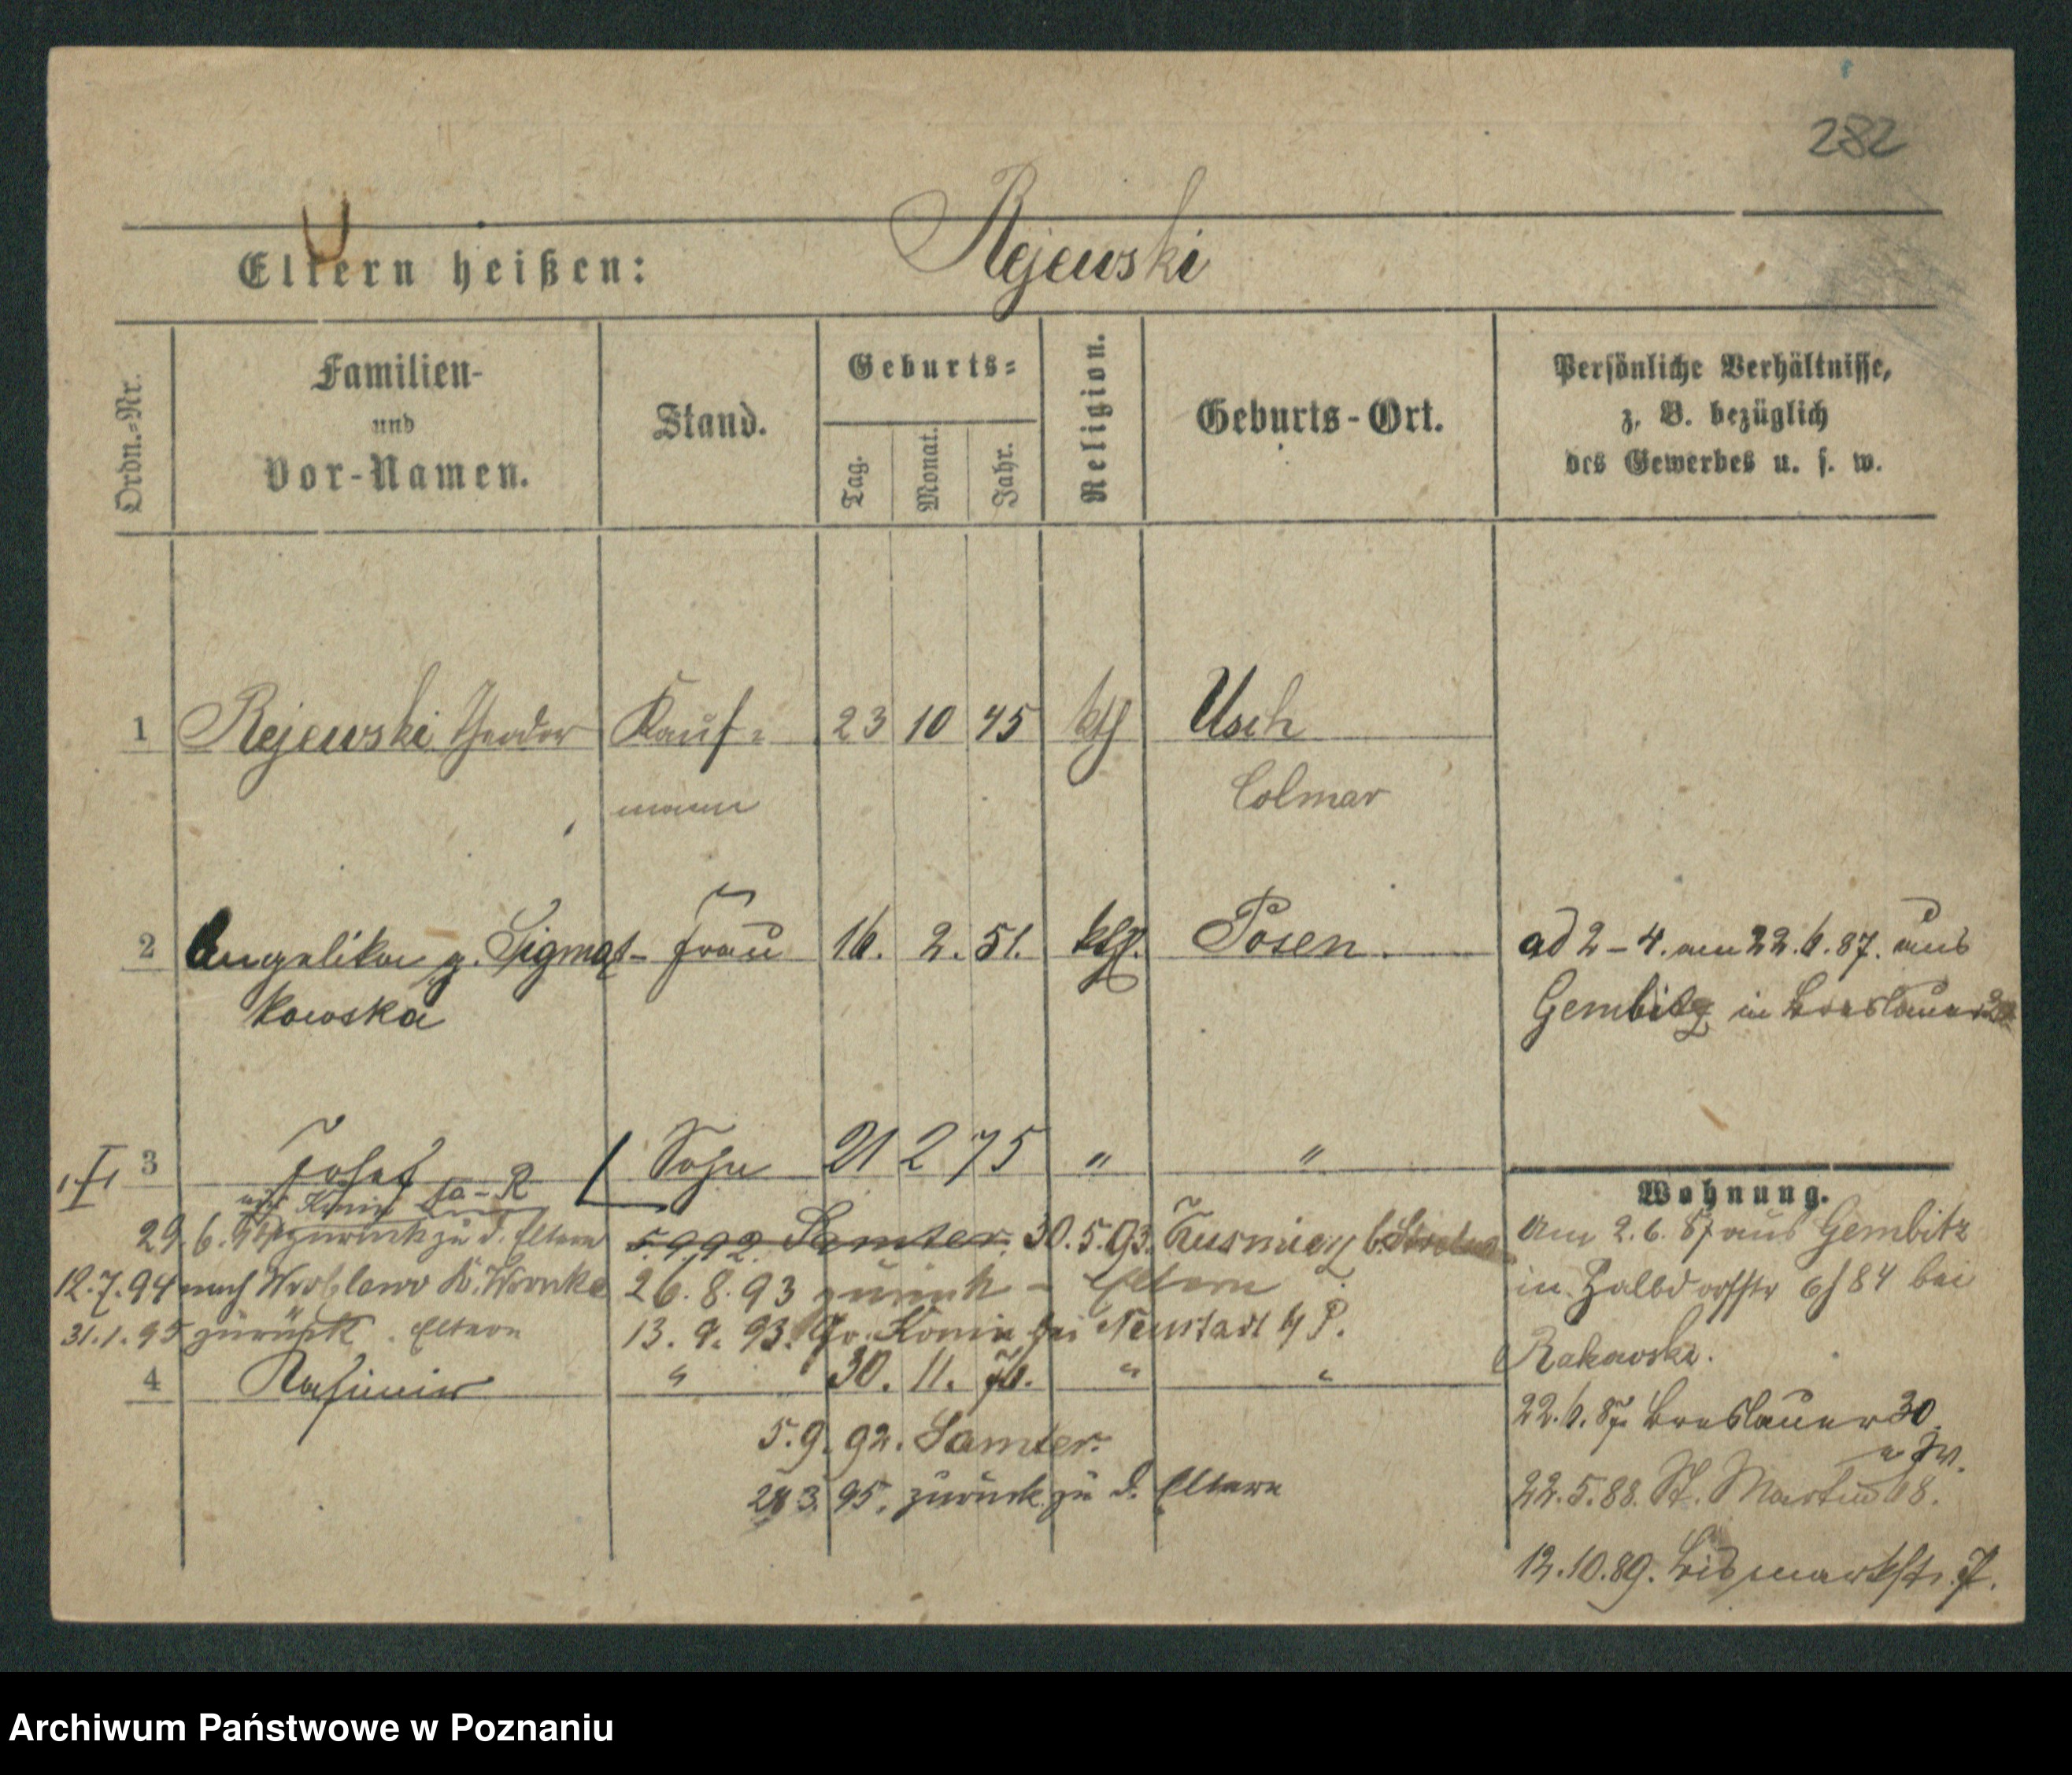 282
Eltern heißen: Rejewski
Ordn.-Nr. Familien- und Vor-Namen. Stand. Geburts= Tag. Monat. Jahr. Religion. Geburts-Ort. Persönliche Verhältnisse, z. B. bezüglich des Gewerbes u. s. w.
1 Rejewski Theodor Kauf= 23 10 45 kth Usch
mann Colmar
2 Angelika g. Sigmat- Frau 16. 2. 51. kth. Posen. ad 2-4. am 22.6.87. aus
kowska Gembitz in Breslauer
3 Josef Sohn 21 2 75 " "
Wohnung.
29.6. zurück zu d. Eltern 5.9.92. Samter. 30.5.93. am 2.6.87 aus Gembitz
12.7.94 nach Wroblewo K. Wronke 26.8.93 zurück - Eltern in Halbdorfstr 84 bei
31.1.95 zurück. Eltern 13. 9. 93. bei Neustadt b/ P. Rakowski.
4 Kasimir " 30. 11. " "
22.6.87. Breslauer 30.
5.9.92. Samter.
22.5.88. St. Martin 68.
3.95. zurück zu d. Eltern
12.10.89. Bismarkstr. 7.
Archiwum Państwowe w Poznaniu